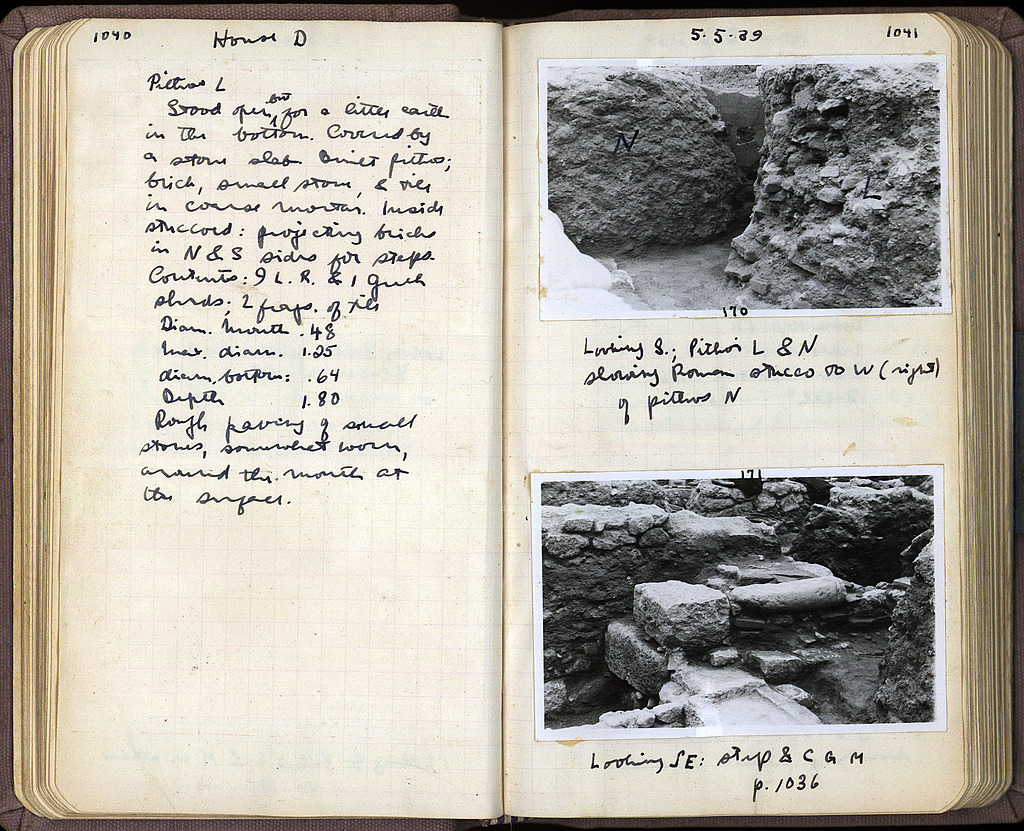 1040
House D
Pithos L
Stood open, but for a little earth
in the bottom. Covered by
a stone slab. Built pithos;
brick, small stone, & tile
in coarse mortar. Inside
stuccoed: projecting bricks
in N & S sides for steps.
Contents: 9 L. R. & 1 Greek
sherds; 2 frags. of tile
Diam. mouth .48
Max. diam. 1.25
diam. bottom: .64
Depth 1.80
Rough paving of small
stones, somewhat worn,
around the mouth at
the surface.
5.5.39
1041
N
L
170
Looking S.; Pithoi L & N
showing Roman stucco to W (right)
of pithos N
171
Looking SE: step & C G M
p. 1036